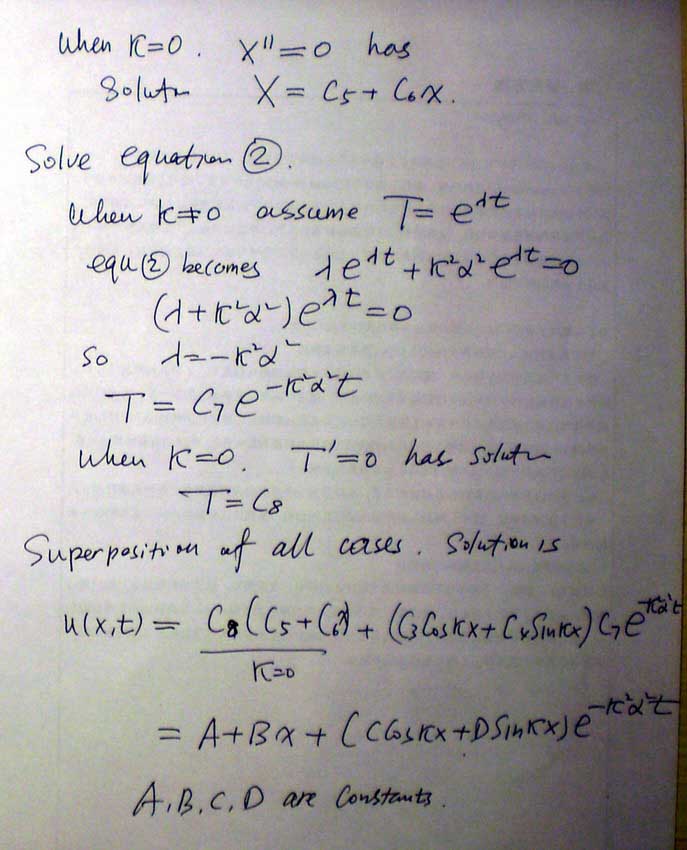 When K=0. X''=0 has
Solutn X = C5 + C6x.
Solve equation ②.
When K≠0 assume T = e^λt
equ ② becomes λe^λt + K²α²e^λt = 0
(λ+K²α²)e^λt = 0
so λ = -K²α²
T = C7 e^-K²α²t
When K=0. T'=0 has solutn
T = C8
Superposition of all cases. Solution is
u(x,t) = C8(C5+C6x) + (C3CosKx + C4SinKx)C7e^-K²α²t
K=0
= A+Bx + (CCosKx+DSinKx)e^-K²α²t
A,B,C,D are Constants.